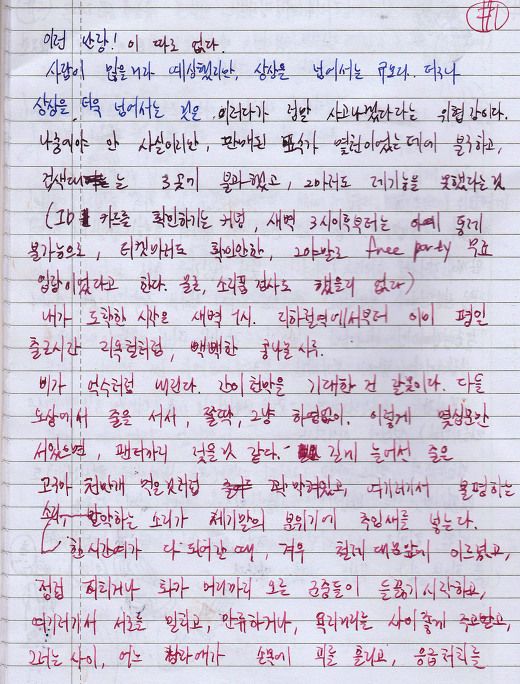 #1
이런 난장! 이 따로 없다.
사람이 많을거라 예상했지만, 상상을 넘어서는 규모다. 더구나
상상을 더욱 넘어서는 것은 이러다가 정말 사고나겠다라는 위협감이다.
나중에야 안 사실이지만, 판매된 표수가 열린이었는데에 불구하고,
검색대는 3곳에 불과했고, 그마저도 제기능을 못했다는것
(ID 카드를 확인하기는 커녕, 새벽 3시이후부터는 아예 통제
불가능으로, 티켓마저도 확인안한, 그야말로 free party 무료
입장이었다고 한다. 물론, 소지품 검사도 했을리 없다)
내가 도착한 시각은 새벽 1시. 지하철역에서부터 이미 평일
출근시간 지옥철처럼, 빽빽한 콩나물 시루.
비가 억수처럼 내린다. 간이천막을 기대한 건 잘못이다. 다들
노상에서 줄을 서서, 쫄딱, 그냥 하염없이. 이렇게 몇십분간
서있으면, 팬티까지 젖을것 같다. 길게 늘어선 줄은
고구마 천만개 먹은것처럼 꽉 막혀있고, 여기저기서 불평하는
발악하는 소리가 세기말의 분위기에 추임새를 넣는다.
한시간여가 다 되어간 때, 겨우 철제 대문앞에 이르렀고,
점점 지치거나 화가 머리까지 오른 군중들이 들끓기 시작하고,
여기저기서 서로를 밀치고, 만류하거나, 욕지거리를 사이좋게 주고받고,
그러는 사이, 어느 여자애가 손목에 피를 흘리고, 응급처치를